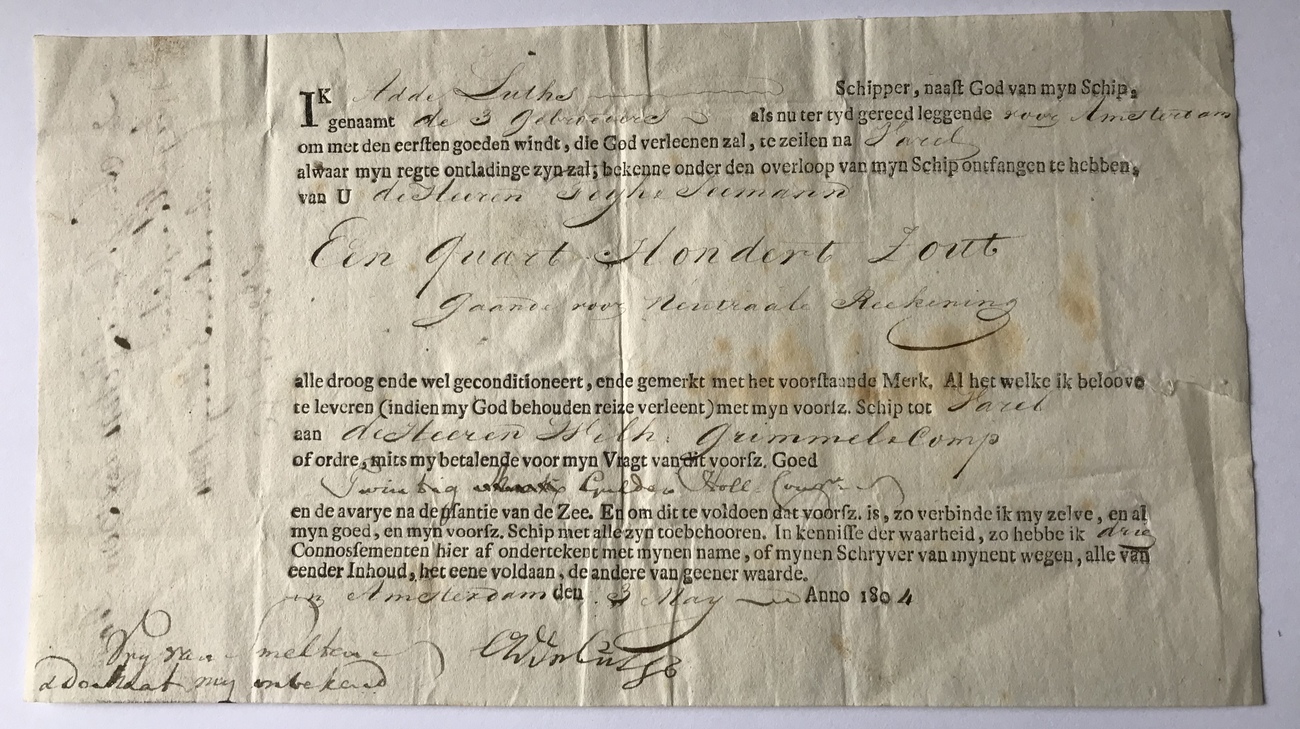 IK Adde Luths Schipper, naaſt God van myn Schip,
genaamt de 3 Gebroeders als nu ter tyd gereed leggende voor Amsterdam
om met den eerſten goeden windt, die God verleenen zal, te zeilen na Varel
alwaar myn regte ontladinge zyn zal; bekenne onder den overloop van myn Schip ontfangen te hebben,
van U de Heeren Feyhe Seemann
Een Quart Hondert Zout
Gaande voor Neutraale Reekening
alle droog ende wel geconditioneert, ende gemerkt met het voorſtaande Merk. Al het welke ik beloove
te leveren (indien my God behouden reize verleent) met myn voorſz. Schip tot Varel
aan de Heeren Wilh: Grimmel & Comp
of ordre, mits my betalende voor myn Vragt van dit voorſz. Goed
Twintig Gulden Holl. Cour:
en de avarye na de uſantie van de Zee. En om dit te voldoen dat voorſz. is, zo verbinde ik my zelve, en al
myn goed, en myn voorſz. Schip met alle zyn toebehooren. In kenniſſe der waarheid, zo hebbe ik drie
Connosſementen hier af ondertekent met mynen name, of mynen Schryver van mynent wegen, alle van
eender Inhoud, het eene voldaan, de andere van geener waarde.
in Amsterdam den 3 May Anno 1804
Vry van smelten
my onbekend